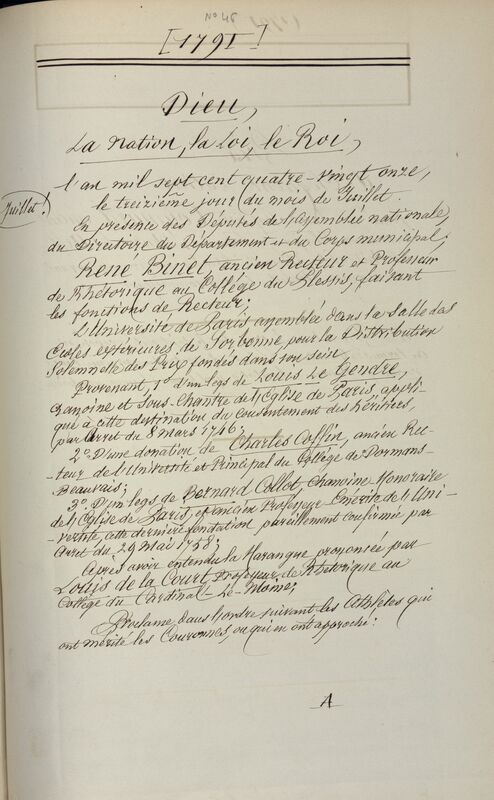 No 46
[1791]
Dieu,
La Nation, la Loi, le Roi,
l'an mil sept cent quatre-vingt onze,
le treizième jour du mois de Juillet.
Juillet.
En présence des Députés de l'Assemblée nationale,
du Directoire du Département et du Corps municipal;
René Binet, ancien Recteur et Professeur
de Rhétorique au Collège du Plessis, faisant
les fonctions de Recteur;
L'Université de Paris assemblée dans la Salle des
Ecoles extérieures de Sorbonne pour la Distribution
Solemnelle des Prix fondés dans son sein
Provenant, 1o d'un legs de Louis Le Gendre,
Chanoine et Sous-Chantre de l'Eglise de Paris, appli-
qué à cette destination du consentement des Héritiers,
par Arret du 8 mars 1746;
2o D'une donation de Charles Coffin, ancien Rec-
-teur de l'Université et Principal du Collège de Dormans-
Beauvais;
3o D'un legs de Bernard Collot, Chanoine Honoraire
de l'Eglise de Paris, et ancien Professeur Emérite de l'Uni-
versité, cette dernière fondation pareillement confirmée par
Arret du 29 mai 1758;
Après avoir entendu la Harangue prononcée par
Louis de la Court, Professeur de Rhétorique au
Collège du Cardinal-Le-Moine;
Proclame dans l'ordre suivant les Athlètes qui
ont mérité les Couronnes, ou qui en ont approché:
A